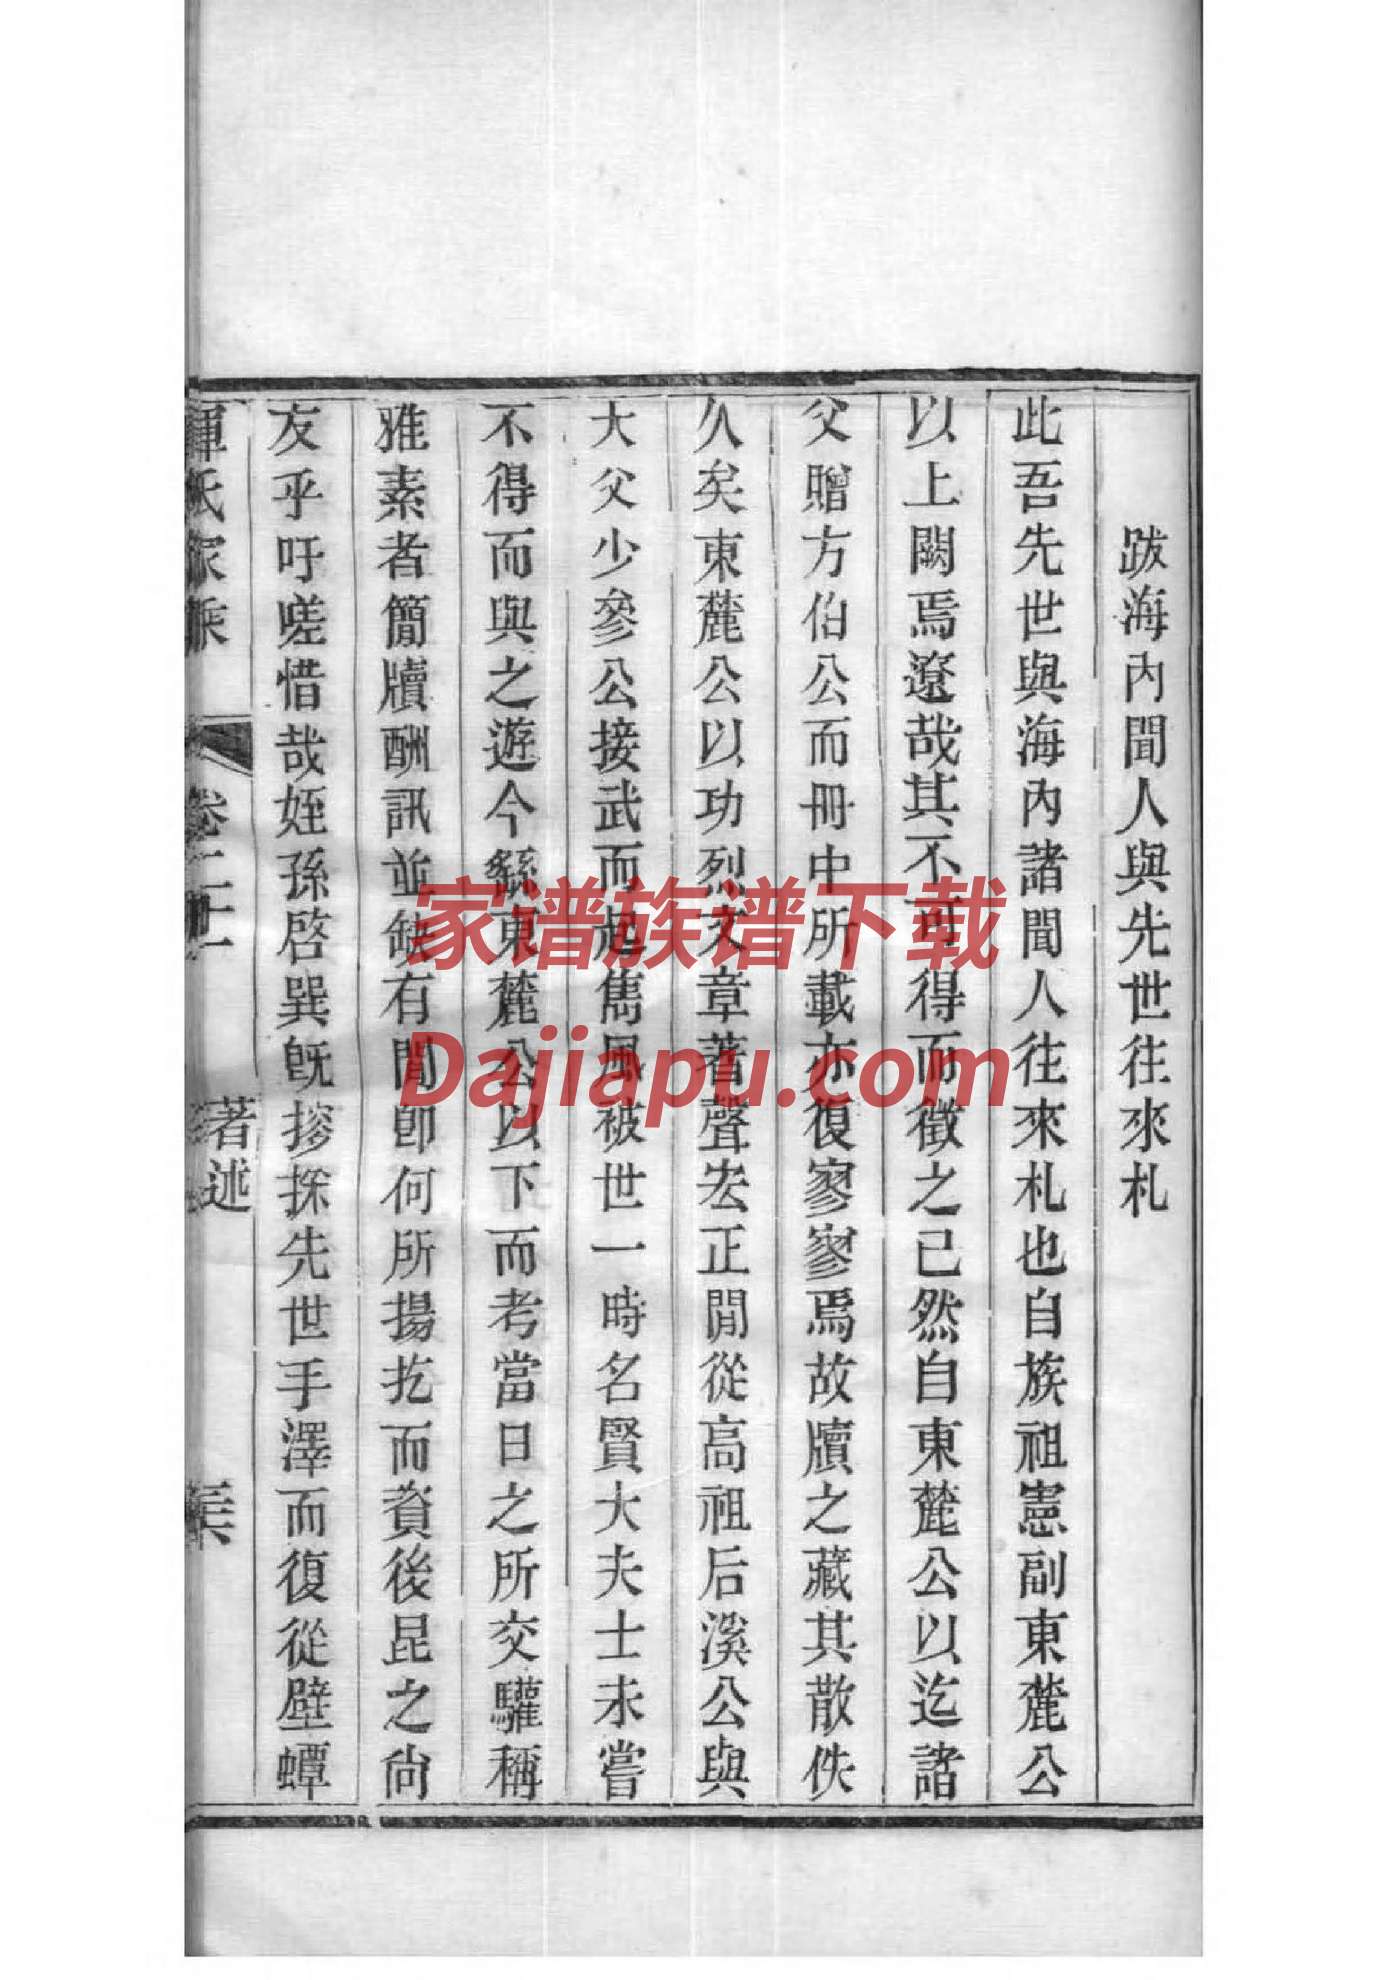 跋海內聞人與先世往來札
此吾先世與海內諸聞人往來札也自族祖憲副東麓公
以上闕焉遼哉其不可得而徵之已然自東麓公以迄諸
父贈方伯公而冊中所載亦復寥寥焉故牘之藏其散佚
久矣東麓公以功烈文章著聲宏正閒從高祖后溪公與
大父少參公接武而起雋風被世一時名賢大夫士未嘗
不得而與之遊今繇東麓公以下而考當日之所交驩稱
雅素者簡牘酬訊並缺有閒卽何所揚扢而資後昆之尙
友乎吁嗟惜哉姪孫啓巽旣搜探先世手澤而復從壁蟫
惲氏家乘
著述
家谱族谱下载
Dajiapu.com